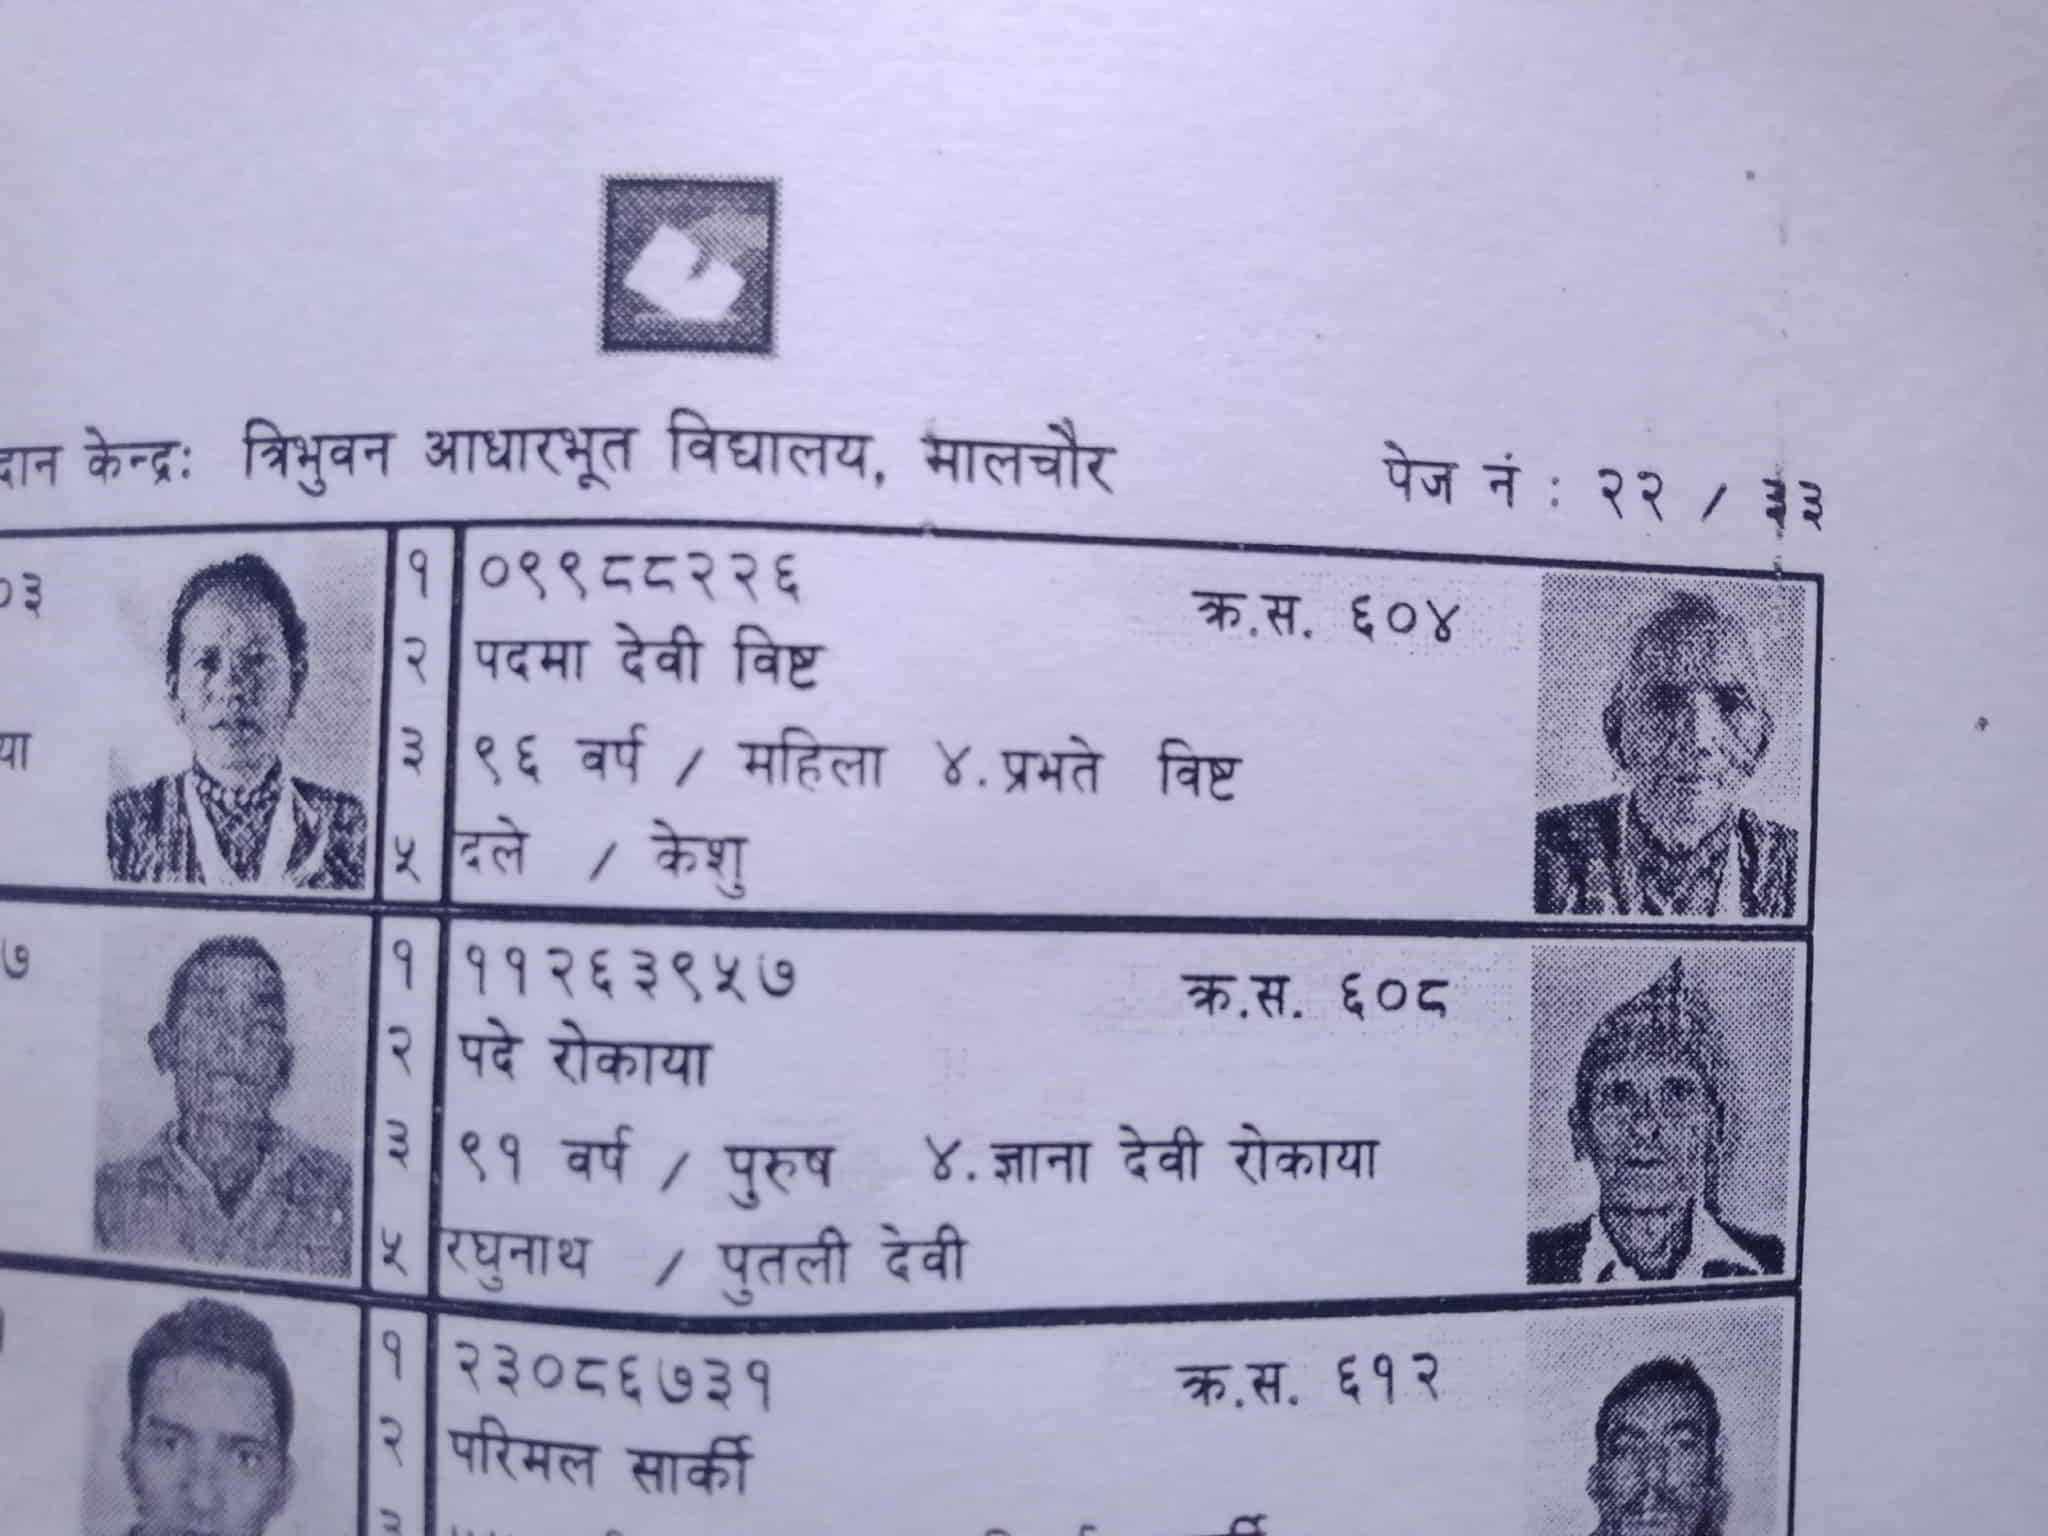 दान केन्द्रः त्रिभुवन आधारभूत विद्यालय, मालचौर पेज नं : २२ / ३३
०३
१ ०९९८८२२६ क्र.स. ६०४
२ पदमा देवी विष्ट
या ३ ९६ वर्ष / महिला ४.प्रभते विष्ट
५ दले / केशु
७ १ ११२६३९५७ क्र.स. ६०८
२ पदे रोकाया
३ ९१ वर्ष / पुरुष ४.ज्ञाना देवी रोकाया
५ रघुनाथ / पुतली देवी
१ २३०८६७३१ क्र.स. ६१२
२ परिमल सार्की
३